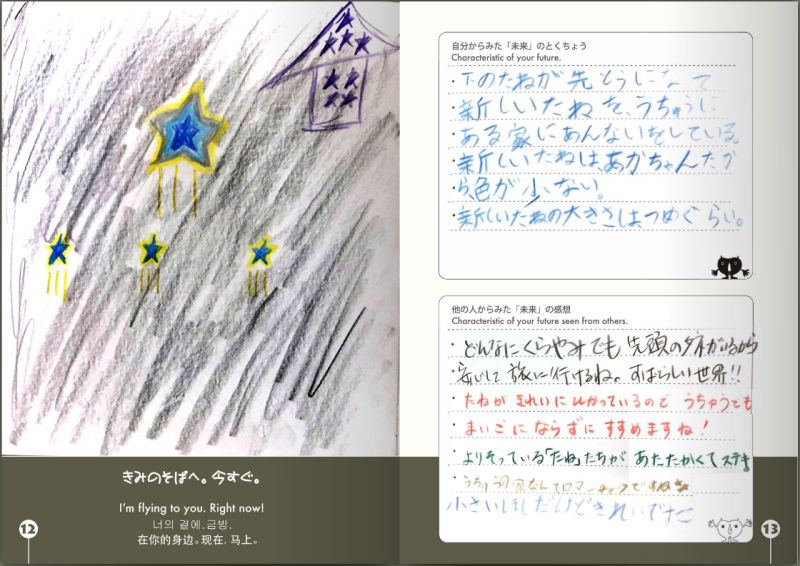 きみのそばへ。今すぐ。
I'm flying to you. Right now!
너의 곁에.금방.
在你的身边。现在, 马上。
12
自分からみた「未来」のとくちょう
Characteristic of your future.
・下のたねが先とうになって
新しいたねを、うちゅうに
ある家にあんないをしている。
・新しいたねは、あかちゃんだか
ら、色が少ない。
・新しいたねの大きさは、つめぐらい。
他の人からみた「未来」の感想
Characteristic of your future seen from others.
・どんなにくらやみでも先頭のタネがいるから
・安心して旅に行けるね。すばらしい世界!!
・たねがきれいにひかっているので うちゅうでも
まいごにならずにすすめますね!
・よりそっている「たね」たちが あたたかくてステキ。
・うちゅうの家なんてロマンチックですね
小さいほしだけどきれいです
13